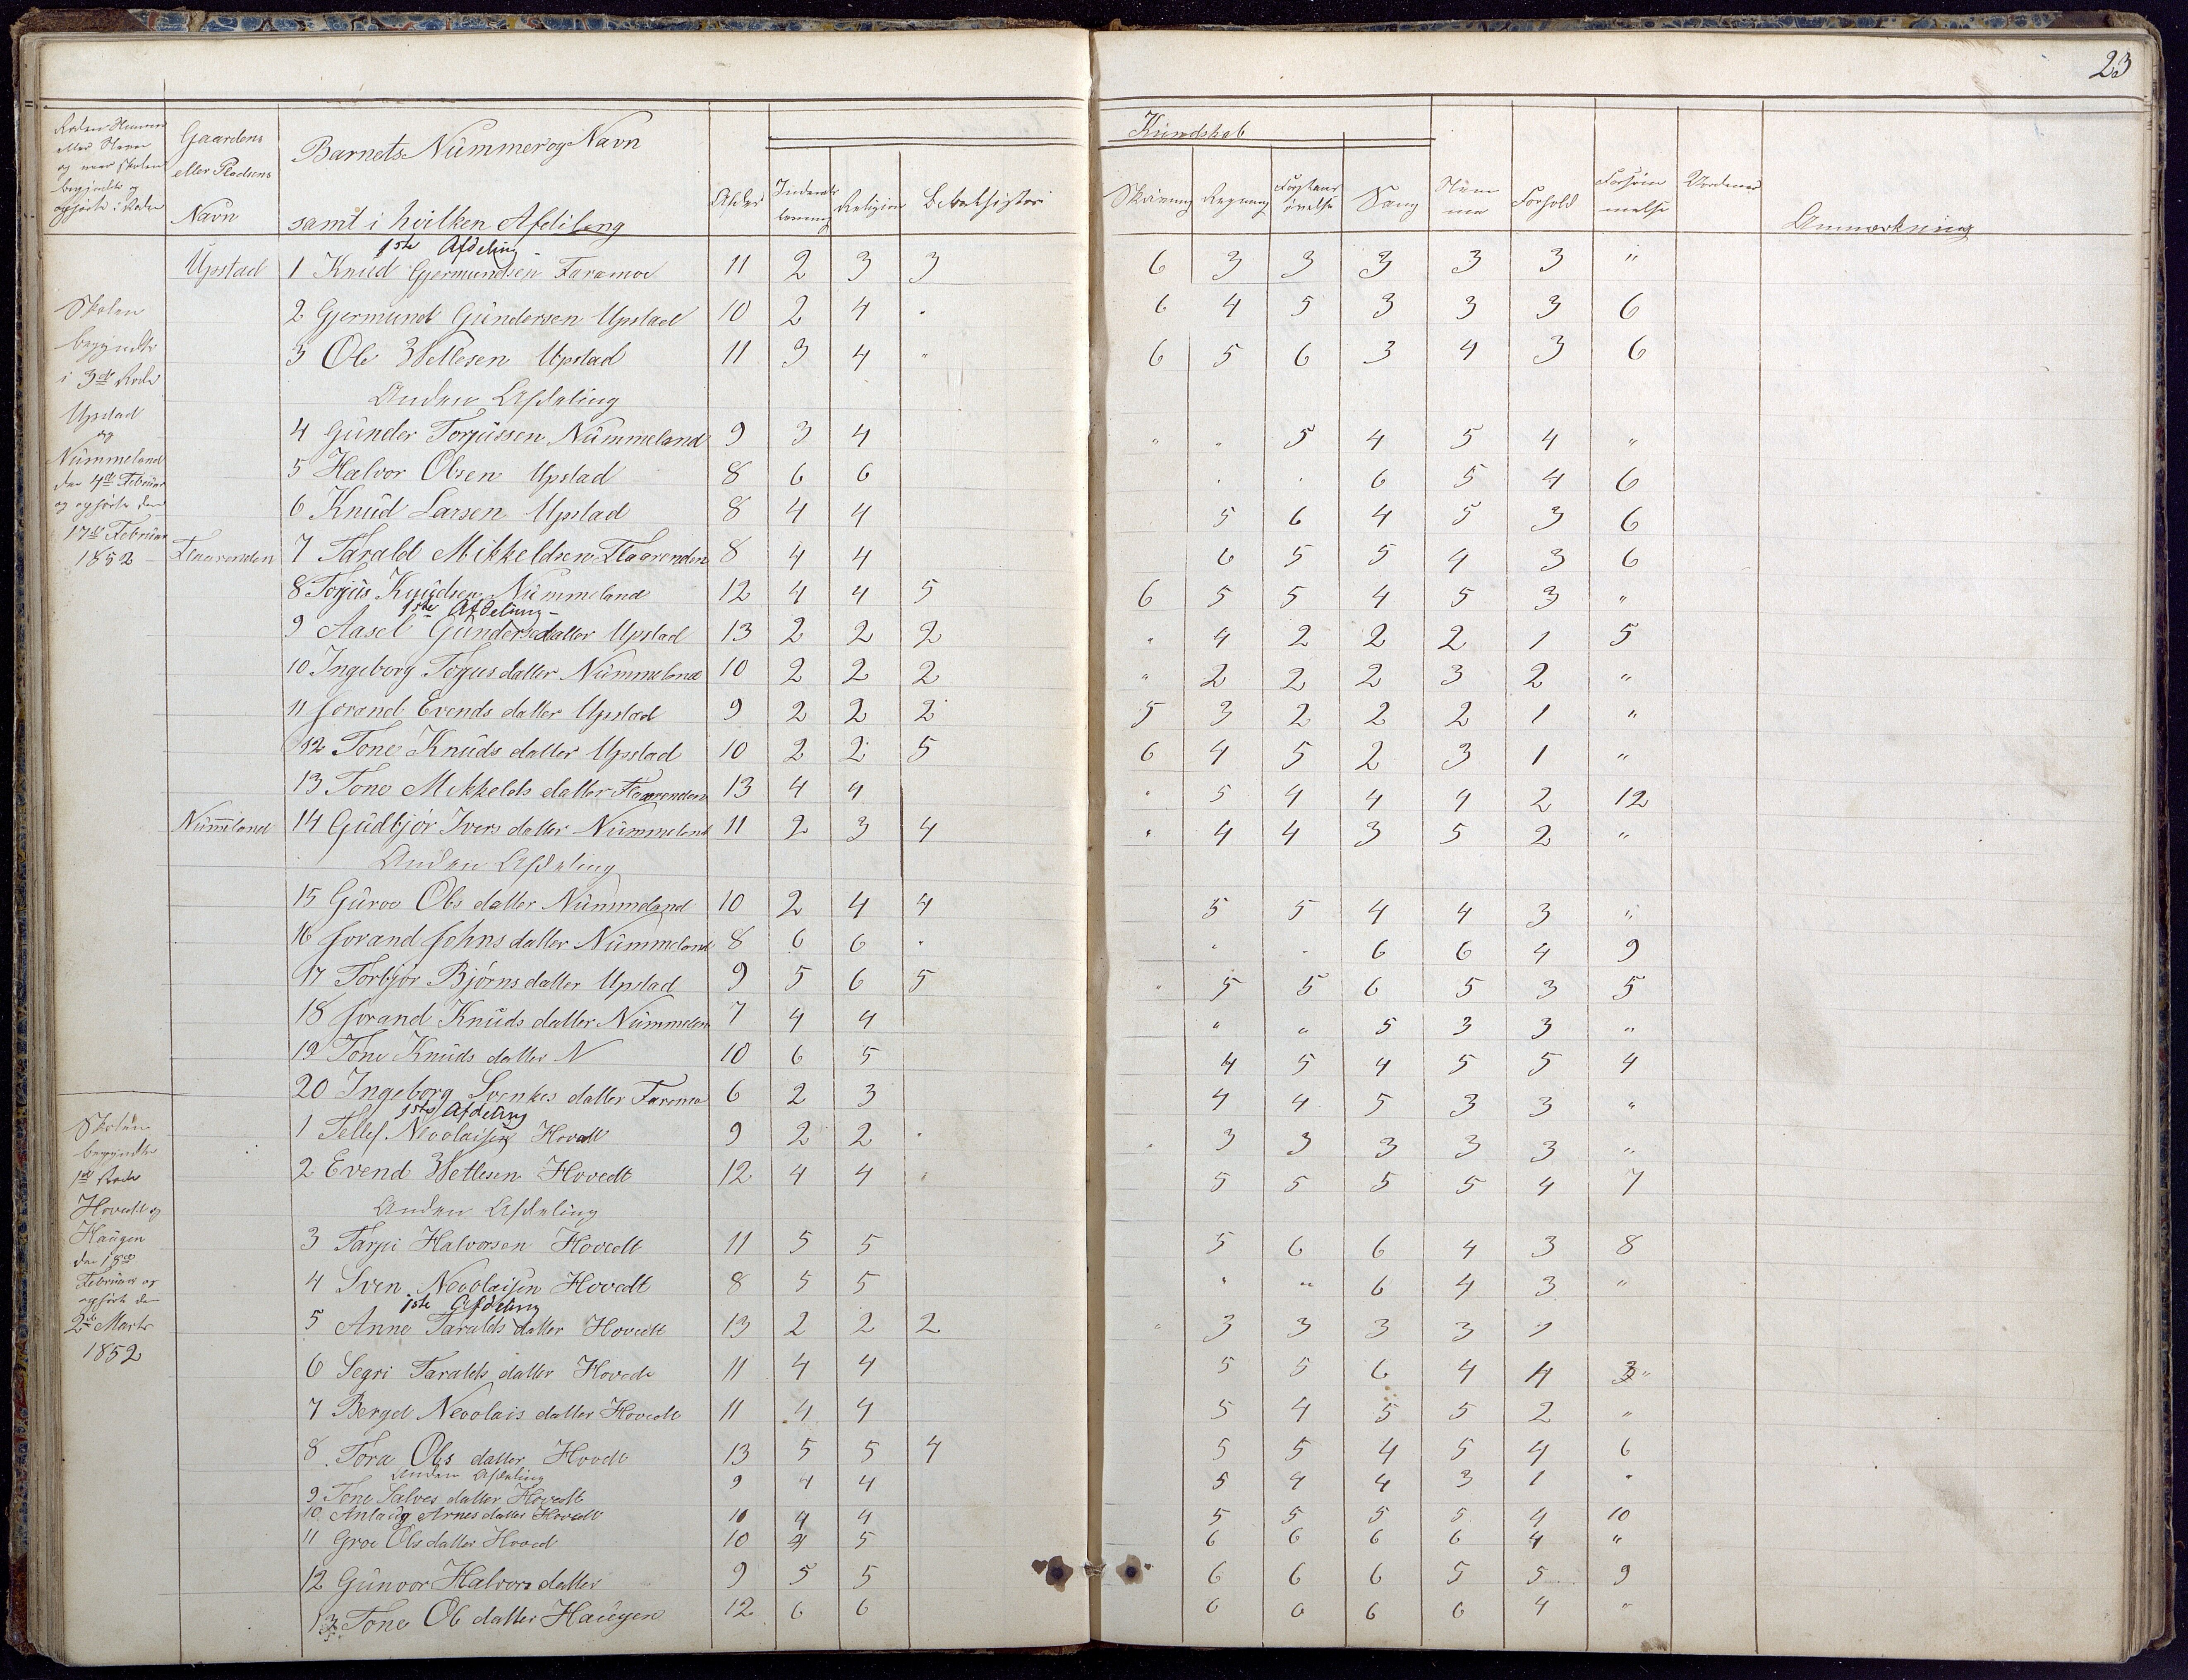 23
Rodens Nummer
eller Navn
og naar Skolen
begyndte og
ophørte i Roden
Gaardens
eller Pladsens
Navn
Barnets Nummer og Navn
samt i hvilken Afdeling
Alder
Indenads læsning
Religion
Kundskab
Skrivning
Regning
Forstands øvelse
Sang
Nemme
Forhold
Forsømmelse
Anmærkning
1ste Afdeling
Upstad 1 Knud Gjermundsen Faramoe 11 2 3 3 6 3 3 3 3 3 "
2 Gjermund Gundersen Upstad 10 2 4 " 6 4 5 3 3 3 6
3 Ole Wetlesen Upstad 11 3 4 " 6 5 6 3 4 3 6
Anden Afdeling
4 Gunder Torjussen Nummeland 9 3 4 " " 5 4 5 4 "
5 Halvor Olsen Upstad 8 6 6 " " 6 5 4 6
6 Knud Larsen Upstad 8 4 4 5 6 4 5 3 6
Flaarenden 7 Tarald Mikkeldsen Flaarenden 8 4 4 6 5 5 4 3 6
8 Torjus Knudsen Nummeland 12 4 4 5 6 5 5 4 5 3 "
1ste Afdeling
9 Aasel Gundersdatter Upstad 13 2 2 2 " 4 2 2 2 1 5
10 Ingeborg Torjusdatter Nummeland 10 2 2 2 " 2 2 2 3 2 "
11 Jorand Evends datter Upstad 9 2 2 2 5 3 2 2 2 1 "
12 Tone Knuds datter Upstad 10 2 2 5 6 4 5 2 3 1 "
13 Tone Mikkelds datter Flaarenden 13 4 4 " 5 4 4 4 2 12
Nummeland 14 Gudbjør Ivers datter Nummeland 11 2 3 4 " 4 4 3 5 2 "
Anden Afdeling
15 Guroe Ols datter Nummeland 10 2 4 4 5 5 4 4 3 "
16 Jorand Johns datter Nummeland 8 6 6 " " " 6 6 4 9
17 Torbjør Bjørns datter Upstad 9 5 6 5 " 5 5 6 5 3 5
18 Jorand Knuds datter Nummelan 7 4 4 " " 5 3 3 "
19 Tone Knuds datter N 10 6 5 4 5 4 5 5 4
20 Ingeborg Svenkes datter Faramo 6 2 3 4 4 5 3 3 "
Skolen
begyndte
i 3die Rode
Upstad
og
Nummeland
den 4de Februar
og ophørte den
17de Februar
1852
1ste Afdeling
1 Tellef Neoolaisen Hovedt 9 2 2 " " 3 3 3 3 3 "
2 Evend Wetlesen Hovedt 12 4 4 " 5 5 5 5 4 7
Anden Afdeling
3 Tarjei Halvorsen Hovedt 11 5 5 5 6 6 4 3 8
4 Sven Neoolaisen Hovedt 8 5 5 " " 6 4 3 "
1ste Afdeling
5 Anne Taralds datter Hovedt 13 2 2 2 " 3 3 3 3 1
6 Segri Taralds datter Hovedt 11 4 4 5 5 6 4 4 3 "
7 Berget Neoolais datter Hovedt 11 4 4 5 4 5 5 2 "
8 Tora Ols datter Hovedt 13 5 5 4 5 5 4 5 4 6
Anden Afdeling
9 Tone Salves datter Hovedt 9 4 4 5 4 4 3 1 "
10 Anlaug Arnes datter Hovedt 10 4 4 5 5 5 5 4 10
11 Groe Ols datter Hoved 10 4 5 6 6 6 6 4 "
12 Gunvor Halvors datter 9 5 5 6 6 6 5 5 9
13 Tone Ole datter Haugen 12 6 6 6 6 6 6 4 "
Skolen
begyndte
1ste Rode
Hovedt og
Haugen
den 18de
Februar og
ophørte den
2den Marts
1852